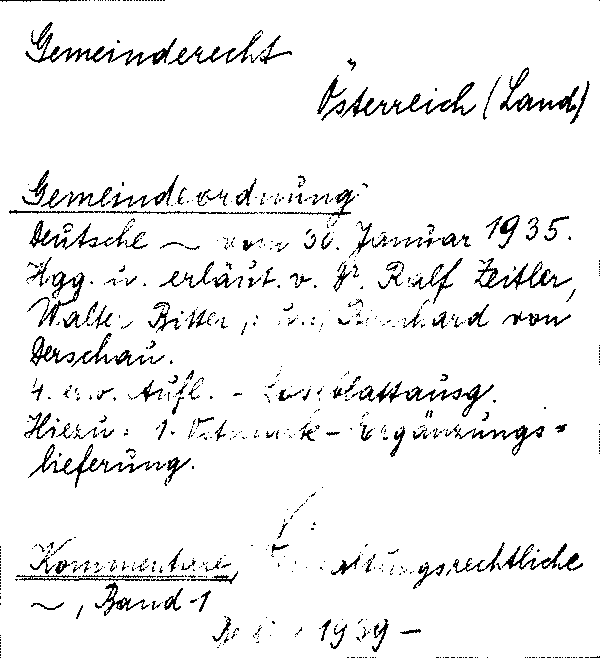 Gemeinderecht
Österreich (Land)
Gemeindeordnung
Deutsche ~ vom 30. Januar 1935.
Hgg. u. erläut. v. Dr. Ralf Zeitler,
Walter Bitter, und Bernhard von
Derschau.
4. erw. Aufl. - Loseblattausg.
Hiezu: 1. Ostmark-Ergänzungs=
lieferung.
Kommentare, Verwaltungsrechtliche
~, Band 1
1939 -